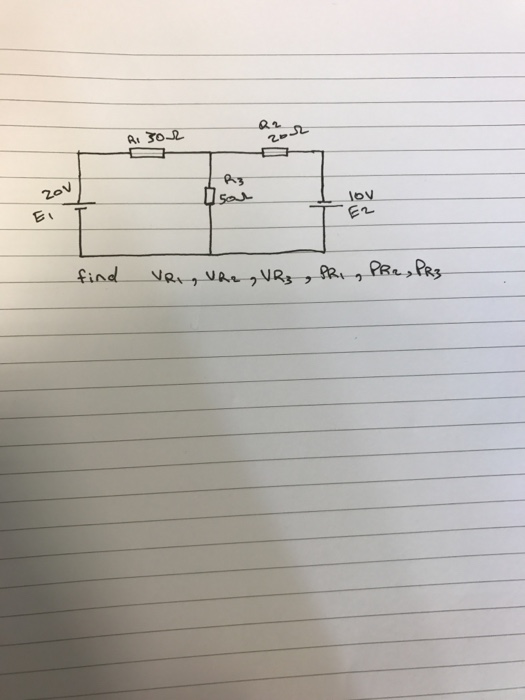 R2
R1 30Ω
20Ω
R3
20V
50Ω
10V
E1
E2
find VR1, VR2, VR3, PR1, PR2, PR3